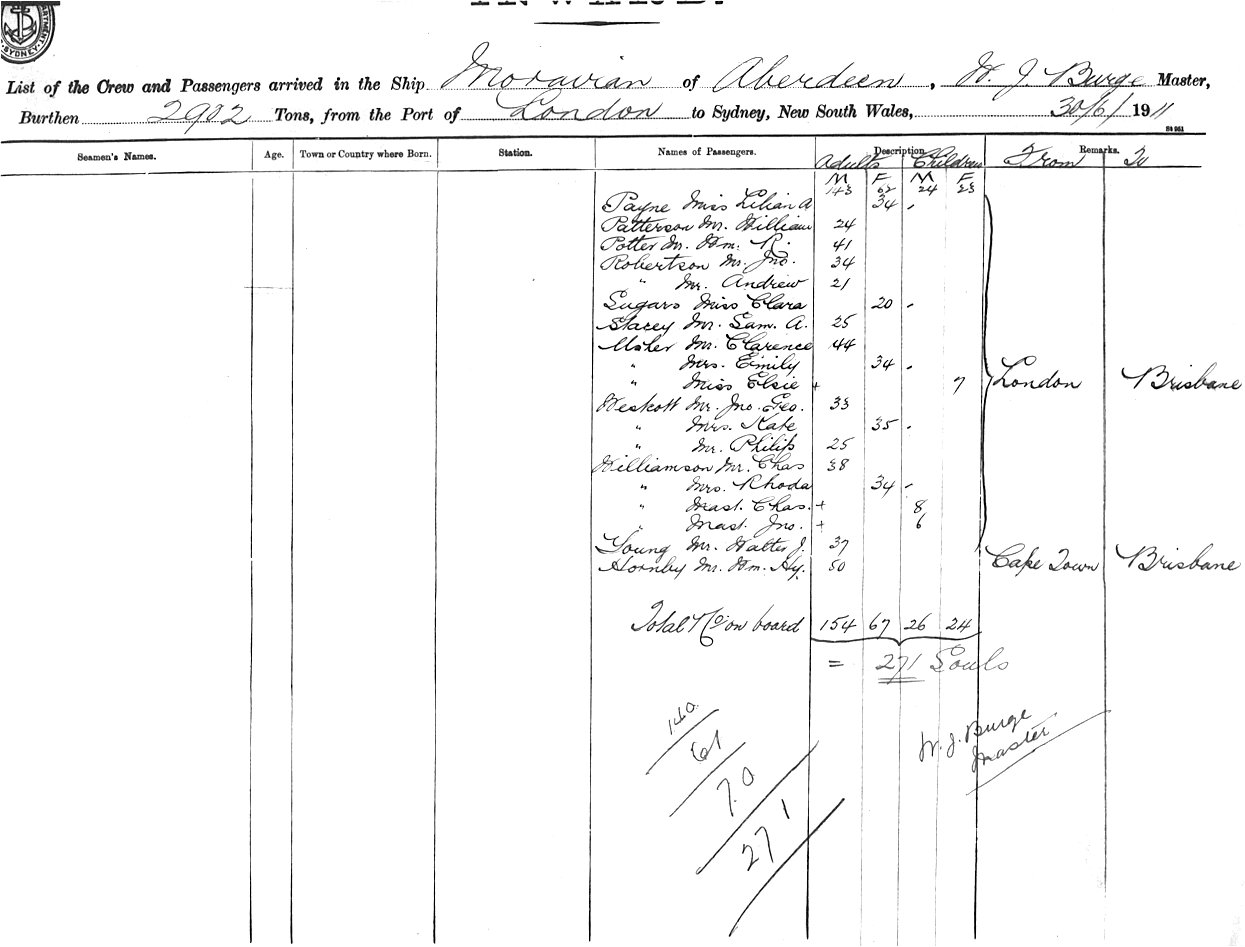 SYDNEY
List of the Crew and Passengers arrived in the Ship Moravian of Aberdeen, W. J. Burge Master,
Burthen 2902 Tons, from the Port of London to Sydney, New South Wales, 30/6/1911
St 951
Seamen's Names. Age. Town or Country where Born. Station. Names of Passengers. Description. Remarks.
Adults Children From To
M F M F
143 62 24 23
Payne Miss Lilian A 34
Patterson Mr. William 24
Potter Mr. Wm. R. 41
Robertson Mr. Jno. 34
" Mr. Andrew 21
Sugars Miss Clara 20
Stacey Mr. Sam. A. 25
Usher Mr. Clarence 44
" Mrs. Emily 34
" Miss Elsie + 7 London Brisbane
Weskott Mr. Jno. Geo. 33
" Mrs. Kate 35
" Mr. Philip 25
Williamson Mr. Chas 38
" Mrs. Rhoda 34
" Mast. Chas. + 8
" Mast. Jno. + 6
Young Mr. Walter J. 37
Hornby Mr. Wm. Hy. 50 Cape Town Brisbane
Total No on board 154 67 26 24
= 271 Souls
140
61
70
271
W. J. Burge
Master